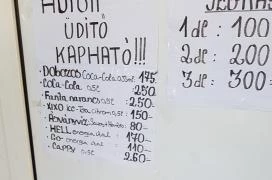 ÜDITŐ
KAPHATÓ!!!
• Dobozos Coca-Cola 0,33l 175
• Coca-Cola 0,5l 250
• Fanta narancs 0,5l 250-
• XIXO Ice-Tea citrom 0,5l 150-
80-
• HELL energia ital 170-
• Go- energia ital 110-
• Cappy 0,5l 260-
1dl : 100
2dl : 200
3dl : 300